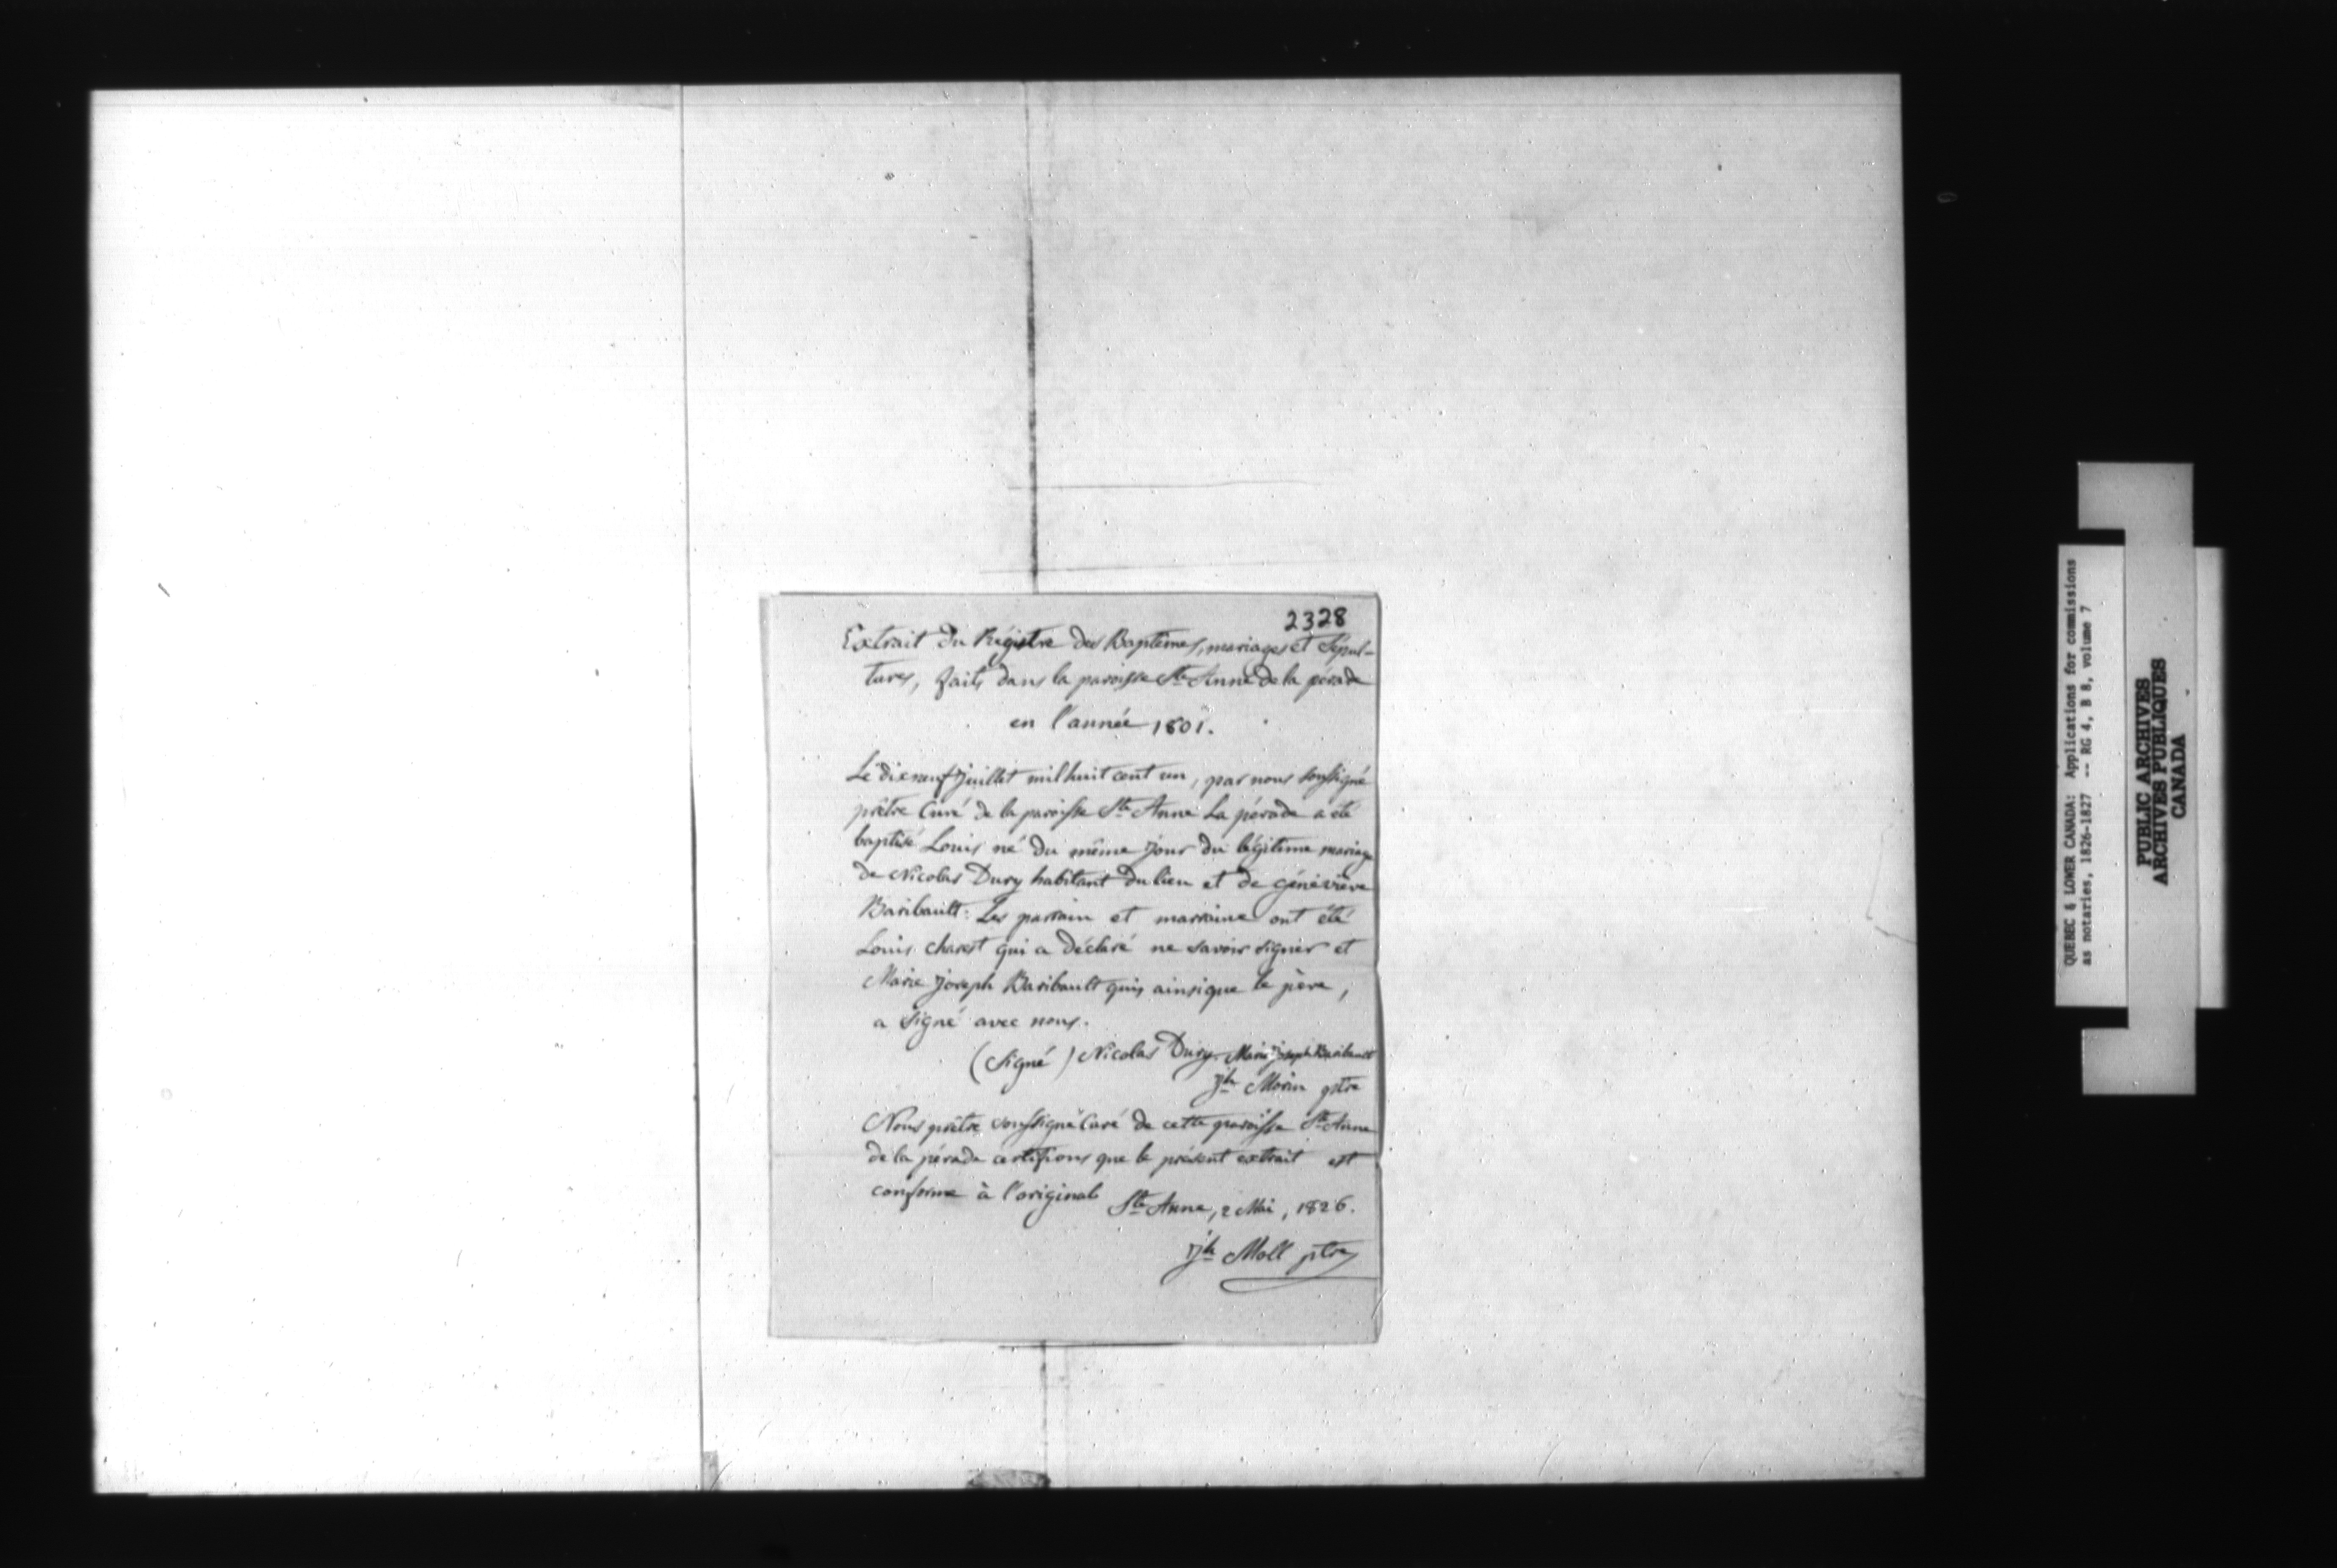 2328
Extrait du Régistre des Baptêmes, mariages et Sépul-
tures, faits dans la paroisse Ste Anne de la pérade
en l'année 1801.
Le dixneuf juillet mil huit cent un, par nous soussigné
prêtre Curé de la paroisse Ste Anne La pérade a été
baptisé Louis né du même jour du légitime mariage
de Nicolas Dury habitant du lieu et de géneviève
Baribault: Les parrain et marraine ont été
Louis charest qui a déclaré ne savoir signer et
Marie joseph Baribault qui, ainsique le père,
a signé avec nous.
(Signé) Nicolas Dury. Marie joseph Baribault
jh Morin ptre
Nous prêtre soussigné Curé de cette paroisse Ste Anne
de la pérade certifions que le présent extrait est
conforme à l'original
Ste Anne, 2 Mai, 1826.
jh Moll ptre
QUEBEC & LOWER CANADA: Applications for commissions
as notaries, 1826-1827 -- RG 4, B 8, volume 7
PUBLIC ARCHIVES
ARCHIVES PUBLIQUES
CANADA